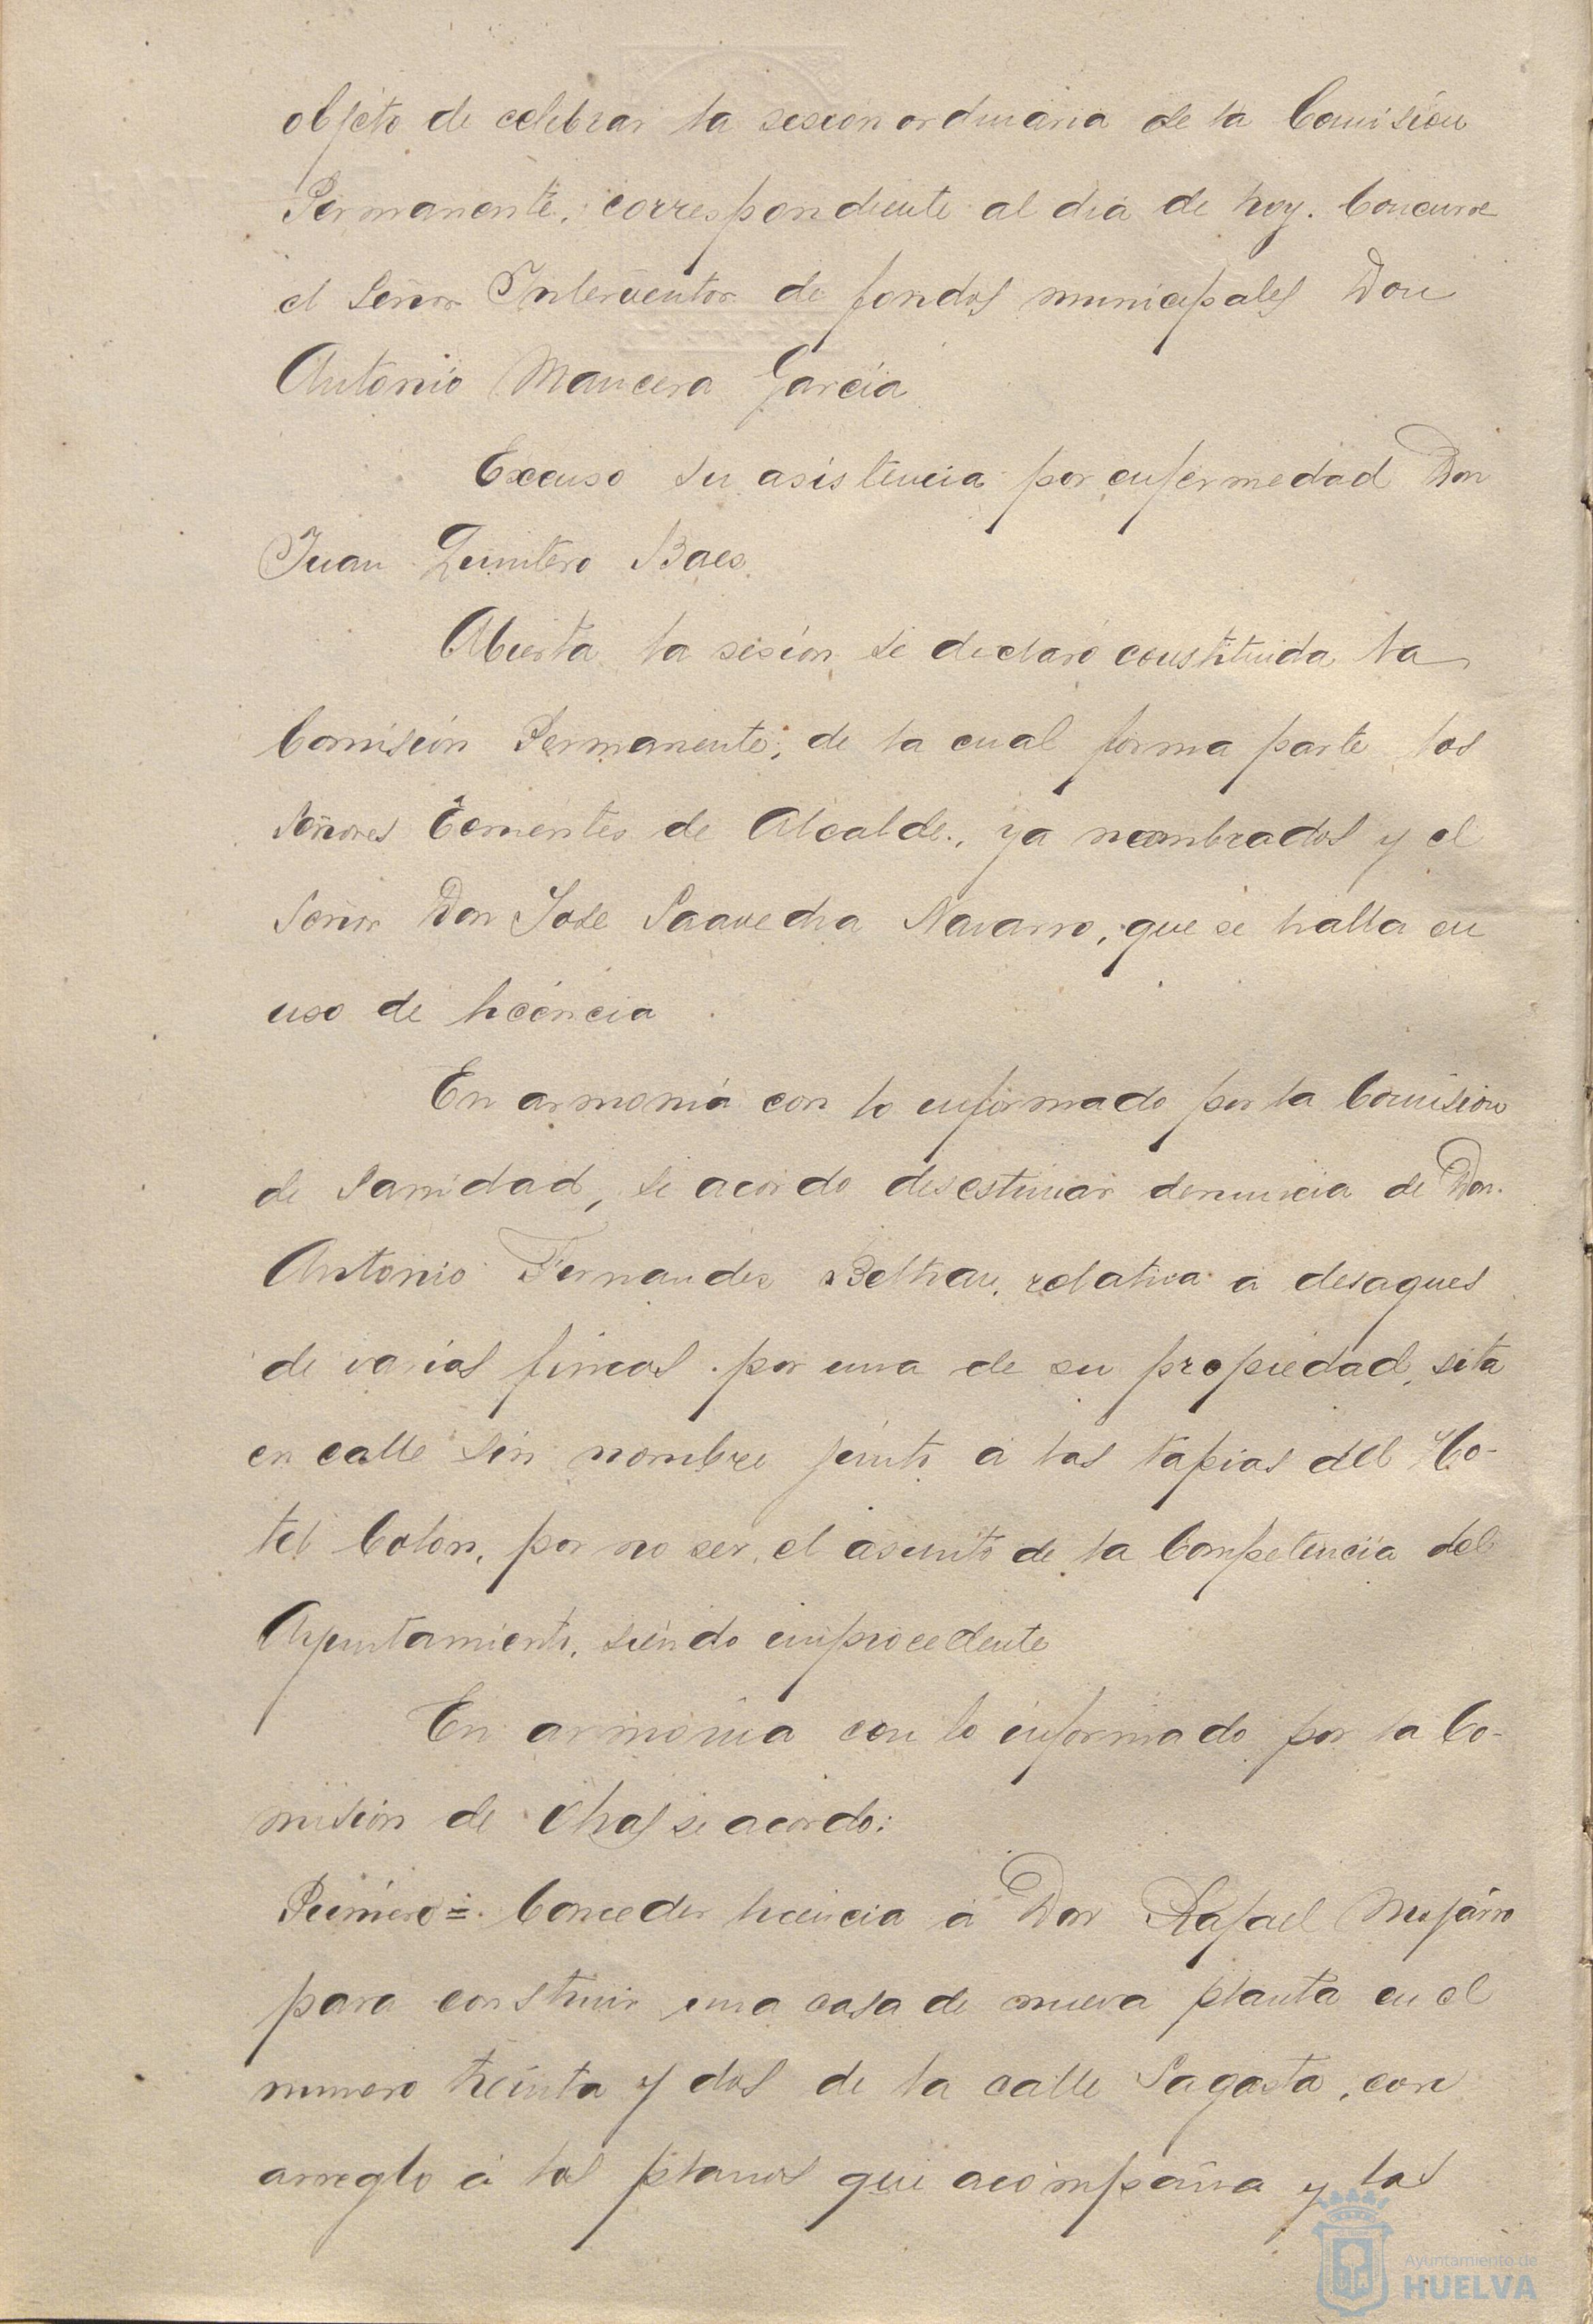 objeto de celebrar la sesion ordinaria de la Comisión
Permanente, correspondiente al dia de hoy. Concurre
el Señor Interventor de fondos municipales Don
Antonio Mancera García
Excuso su asistencia por enfermedad Don
Juan Quintero Baes.
Abierta la sesión se declaró constituida la
Comisión Permanente, de la cual forma parte los
Señores Tenientes de Alcalde, ya nombrados y el
Señor Don José Saavedra Navarro, que se halla en
uso de licencia.
En armonía con lo informado por la Comision
de Sanidad, se acordo desestimar denuncia de Don
Antonio Fernandez Beltran, relativa a desagues
de varias fincas por una de su propiedad, sita
en calle sin nombre junto a las tapias del Ho-
tel Colon, por no ser el asunto de la Competencia del
Ayuntamiento, siendo improcedente
En armonía con lo informado por la Co-
misión de Obras se acordo:
Primero =. Conceder licencia a Don Rafael Mojarro
para construir una casa de nueva planta en el
numero treinta y dos de la calle Sagasta, con
arreglo a los planos que acompaña y las
Ayuntamiento de
HUELVA